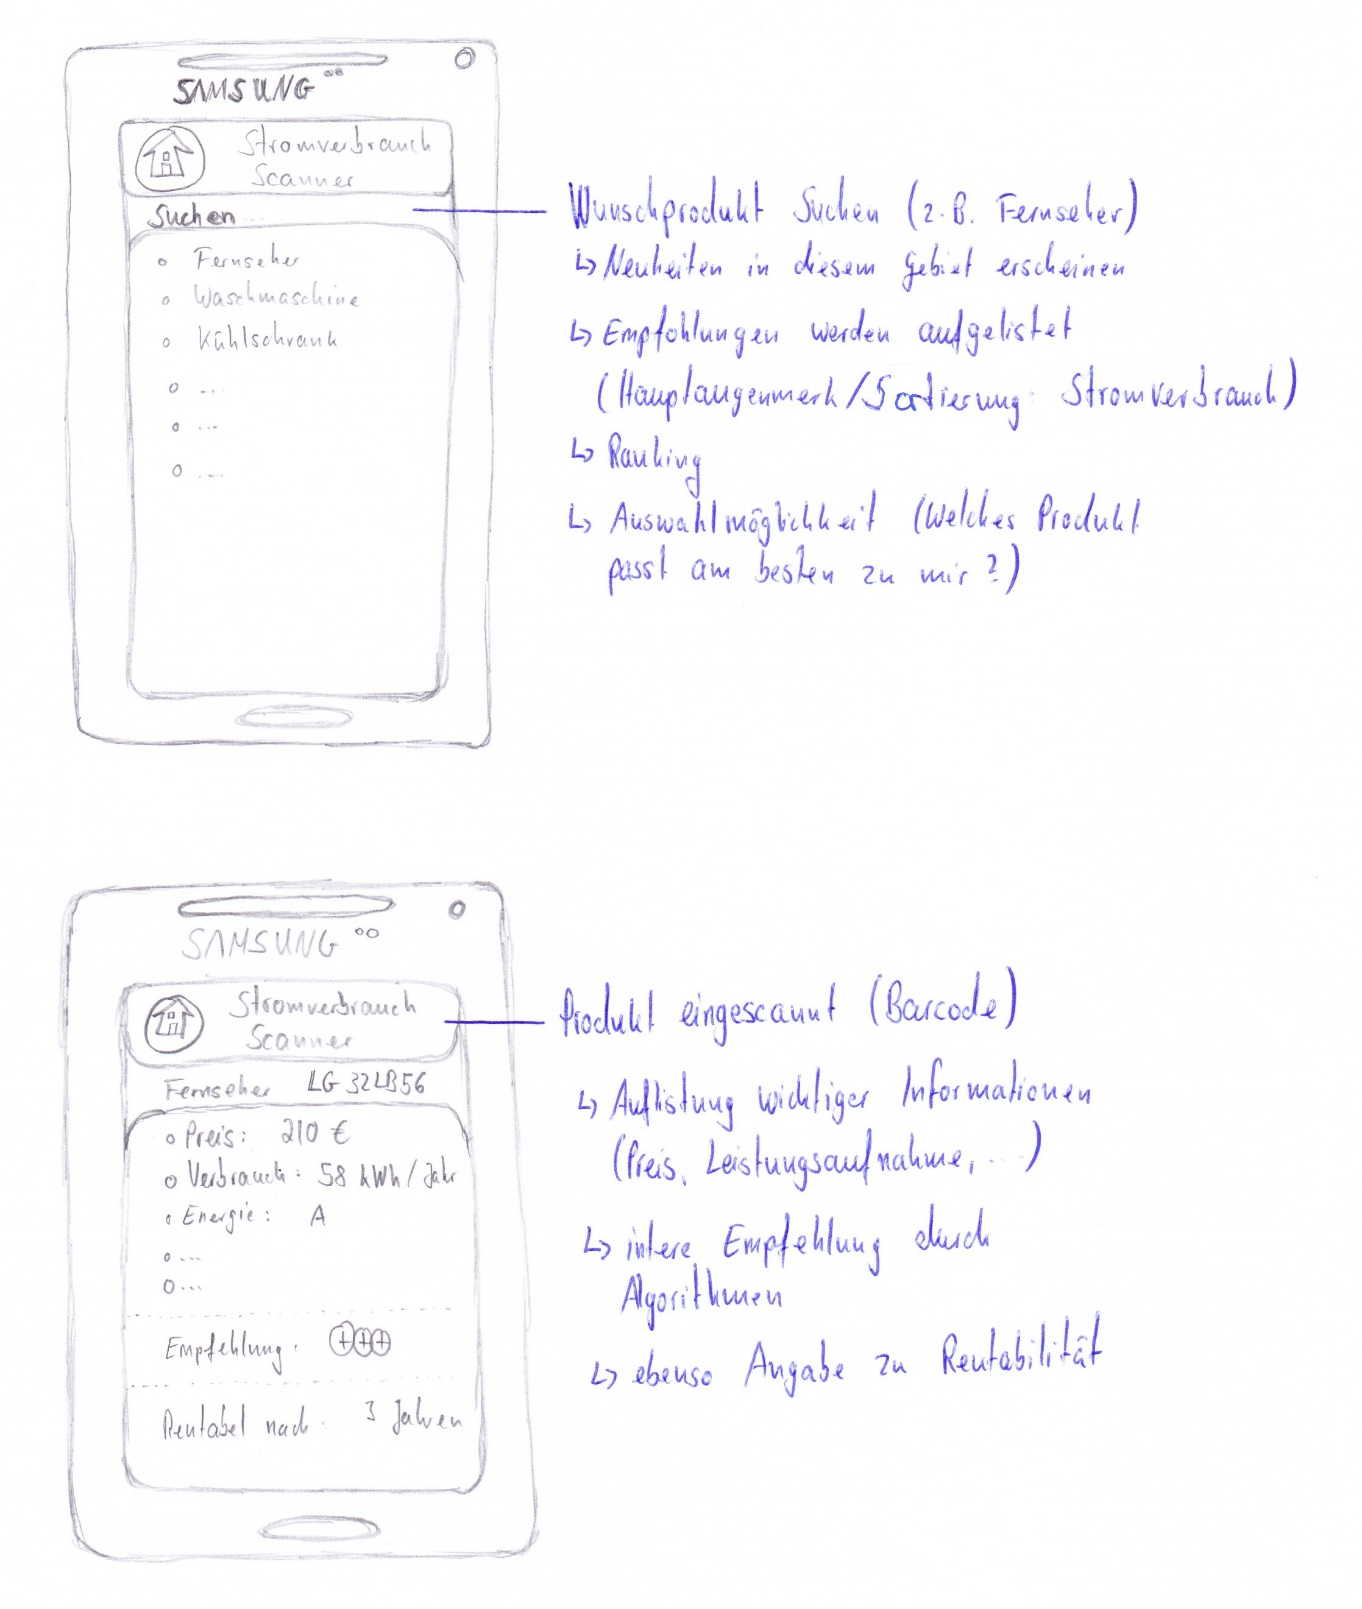 SAMSUNG
Stromverbrauch
Scanner
Suchen ...
o Fernseher
o Waschmaschine
o Kühlschrank
o ...
o ...
o ...
Wunschprodukt Suchen (z.B. Fernseher)
↳ Neuheiten in diesem Gebiet erscheinen
↳ Empfohlungen werden aufgelistet
(Hauptaugenmerk/Sortierung: Stromverbrauch)
↳ Ranking
↳ Auswahlmöglichkeit (Welches Produkt
passt am besten zu mir?)
SAMSUNG
Stromverbrauch
Scanner
Fernseher LG 32LB56
o Preis: 210 €
o Verbrauch: 58 kWh/Jahr
o Energie: A
o ...
o ...
Empfehlung: +++
Rentabel nach: 3 Jahren
Produkt eingescannt (Barcode)
↳ Auflistung wichtiger Informationen
(Preis, Leistungsaufnahme, ...)
↳ intere Empfehlung durch
Algorithmen
↳ ebenso Angabe zu Rentabilität